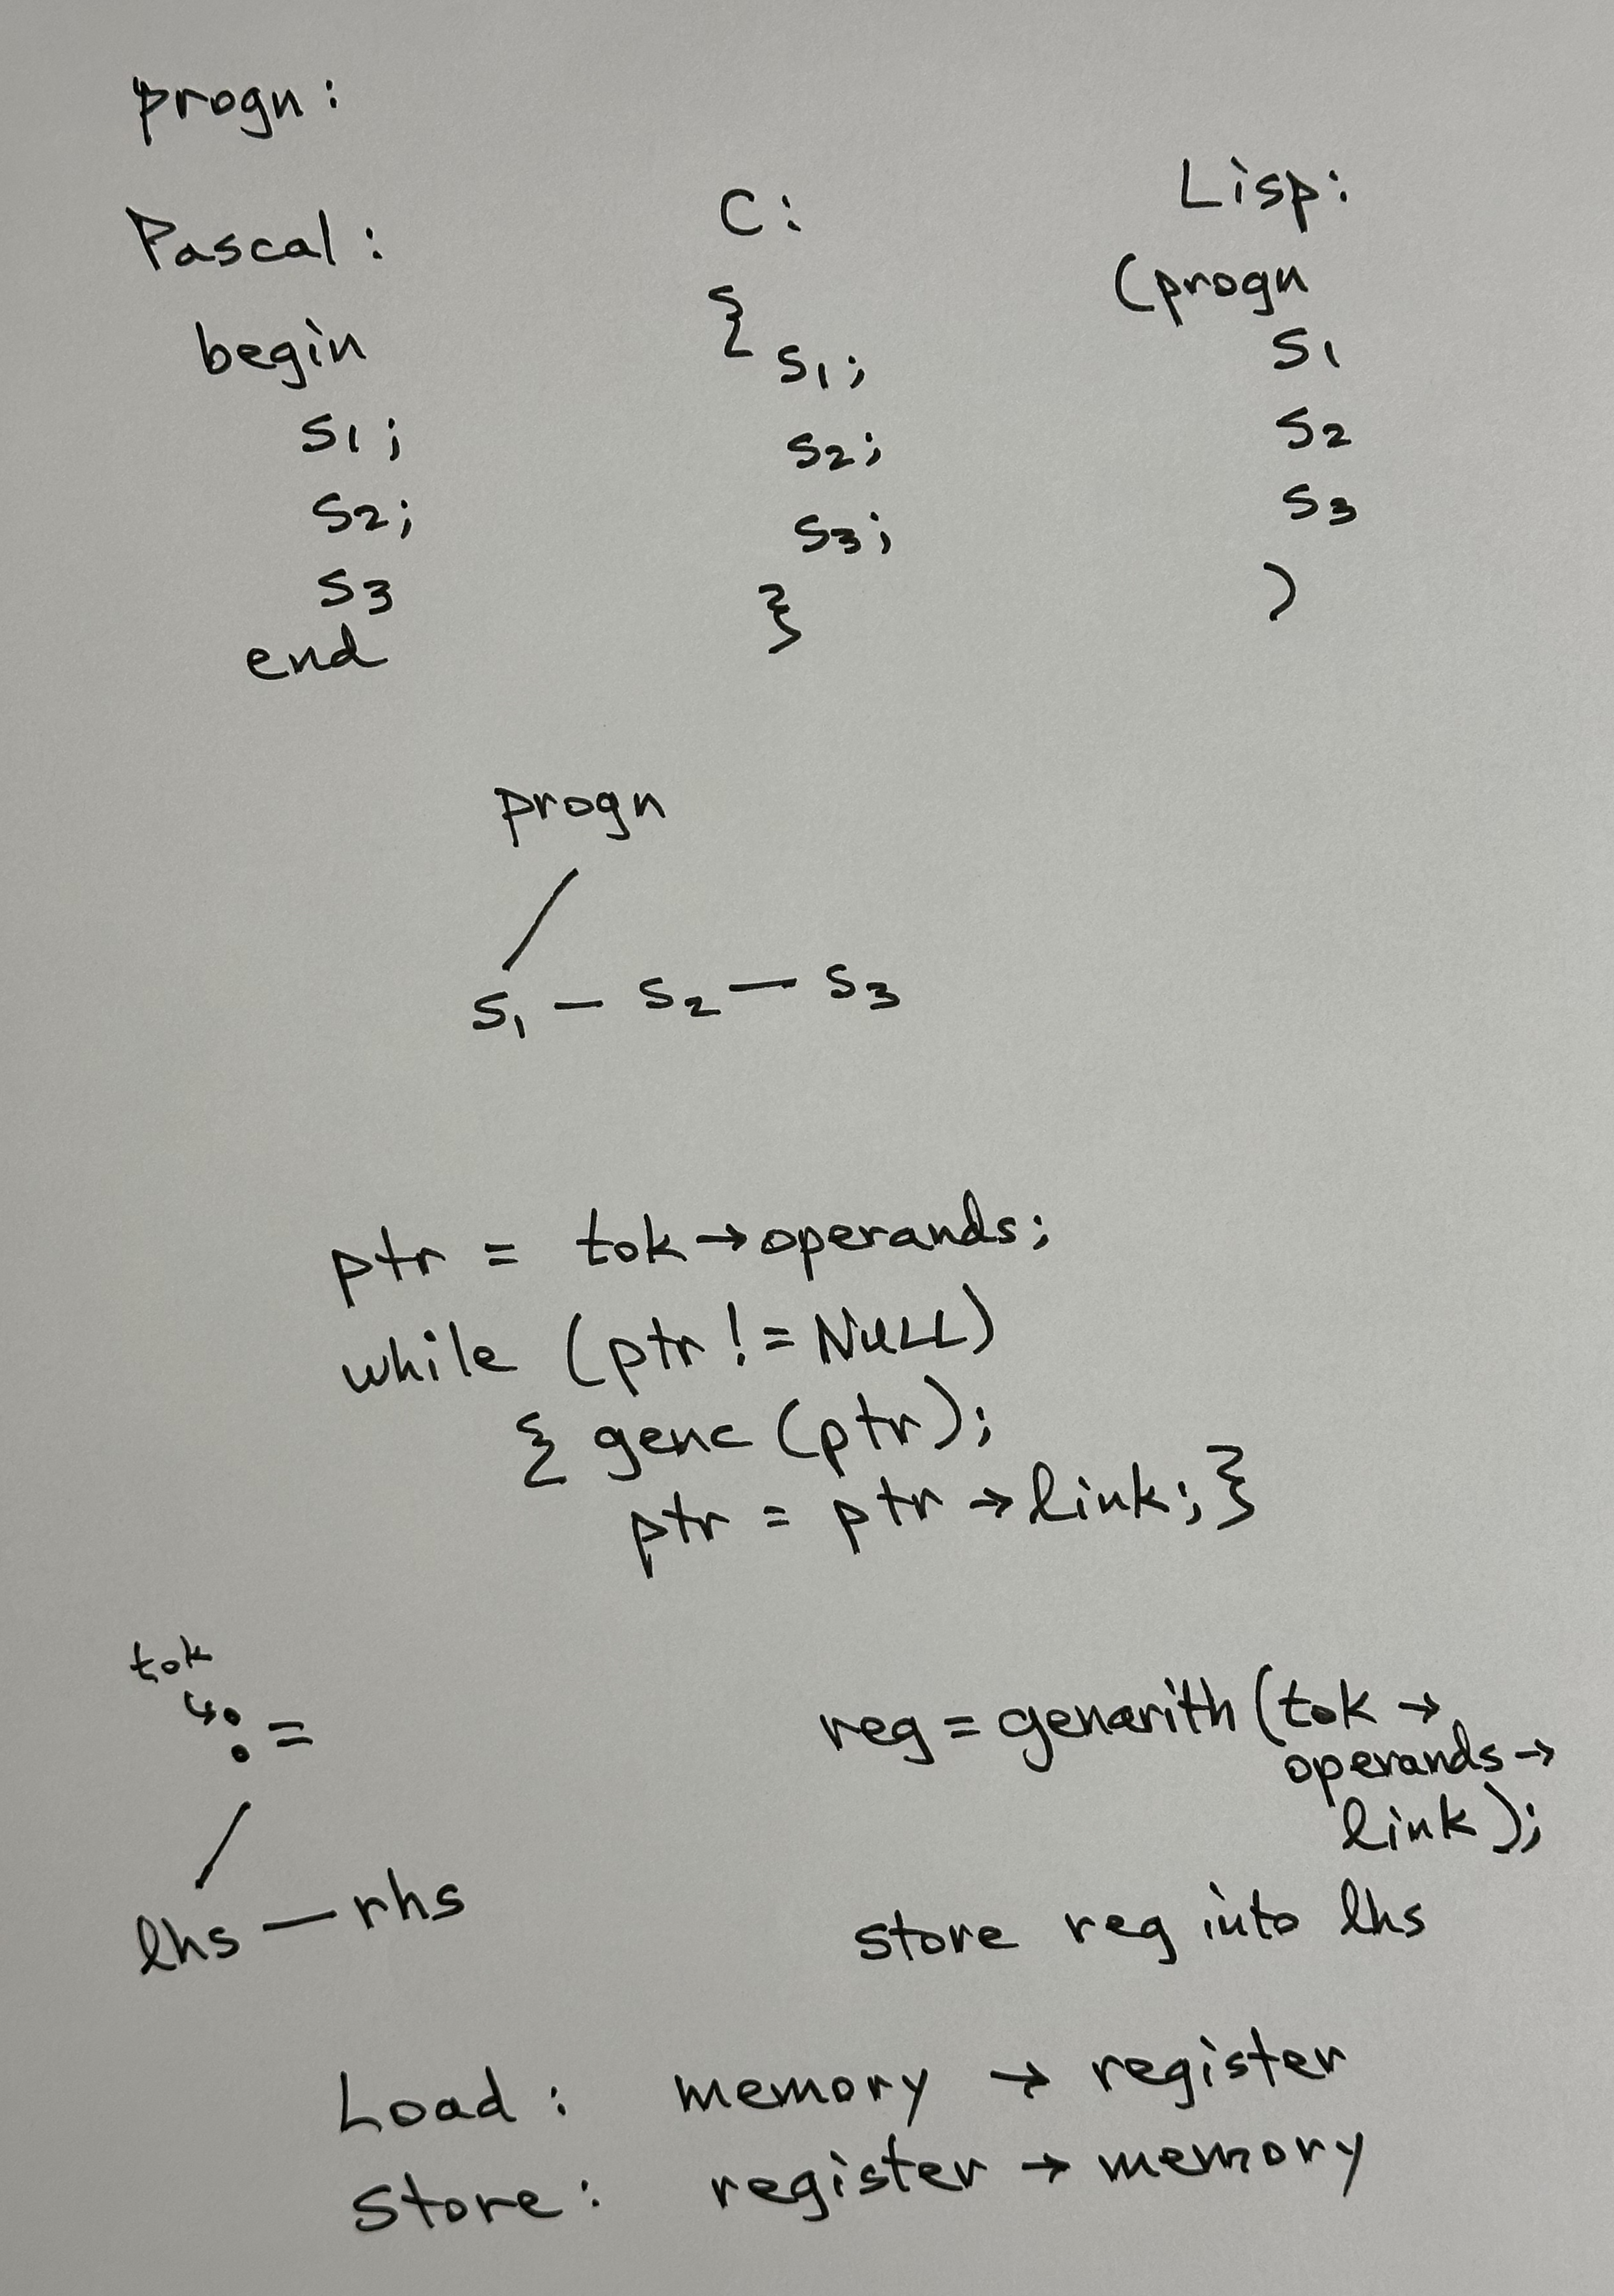 progn:
Pascal:
begin
s1;
s2;
s3
end
C:
{
s1;
s2;
s3;
}
Lisp:
(progn
s1
s2
s3
)
progn
s1 — s2 — s3
ptr = tok→operands;
while (ptr != NULL)
{ genc (ptr);
ptr = ptr → link; }
tok
:=
lhs — rhs
reg = genarith (tok →
operands →
link);
store reg into lhs
Load: memory → register
Store: register → memory